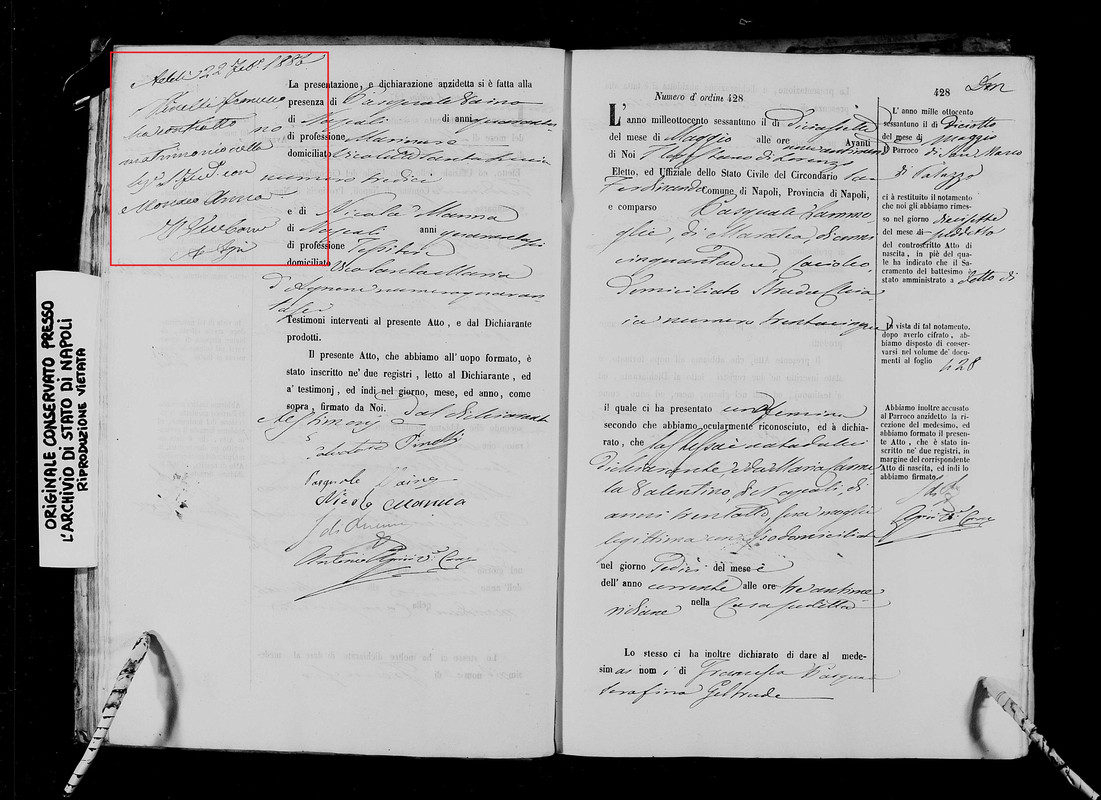 Addì 22 Feb.° 1886
ha contratto
matrimonio colla
con
Monaco Anna
La presentazione, e dichiarazione anzidetta si è fatta alla
presenza di Pasquale Daino
di Napoli di anni quaranta
di professione Marinaro
domiciliato Vico Santa Lucia
numero tredici
e di Nicola Manna
di Napoli anni quarantasei
di professione
domiciliato Vico Santa Maria
d'Agnone numero quaran
tasei
Testimoni interventi al presente Atto, e dal Dichiarante
prodotti.
Il presente Atto, che abbiamo all' uopo formato, è
stato inscritto ne' due registri, letto al Dichiarante, ed
a' testimonj, ed indi nel giorno, mese, ed anno, come
sopra, firmato da Noi. dal dichiarante
e testimonj
Pasquale Daino
Nicola Manna
ORIGINALE CONSERVATO PRESSO
L'ARCHIVIO DI STATO DI NAPOLI
RIPRODUZIONE VIETATA
428
Numero d' ordine 428
L' anno milleottocento sessantuno il dì diciassette
del mese di Maggio alle ore Avanti
di Noi di Lorenzo
Eletto, ed Uffiziale dello Stato Civile del Circondario San
Ferdinando Comune di Napoli, Provincia di Napoli,
e comparso Pasquale
di Maratea, di anni
cinquantadue,
domiciliato Strada Chia
ia numero trentacinque
il quale ci ha presentato una Femina
secondo che abbiamo ocularmente riconosciuto, ed à dichia-
rato, che la stessa è nata da lui
dichiarante, e da Maria Carme
la Valentino, di Napoli, di
anni trentotto, sua moglie
legittima domiciliata
nel giorno sedici del mese e
dell' anno corrente alle ore tre antime
ridiane nella Casa suddetta
Lo stesso ci ha inoltre dichiarato di dare al mede-
simo as nom i di Francesca Pasqua
Serafina Geltrude
L' anno mille ottocento
sessantuno il dì diciotto
del mese di Maggio
Il Parroco di San Marco
di Palazzo
ci à restituito il notamento
che noi gli abbiamo rimes-
so nel giorno diciassette
del mese di suddetto
del controscritto Atto di
nascita, in piè del qua-
le ha indicato che il Sa-
cramento del battesimo è
stato amministrato a detto dì
In vista di tal notamento,
dopo averlo cifrato, ab-
biamo disposto di conser-
varsi nel volume de' docu-
menti al foglio 428
Abbiamo inoltre accusato
al Parroco anzidetto la ri-
cezione del medesimo, ed
abbiamo formato il presen-
te Atto, che è stato in-
scritto ne' due registri, in
margine del corrispondente
Atto di nascita, ed indi lo
abbiamo firmato.